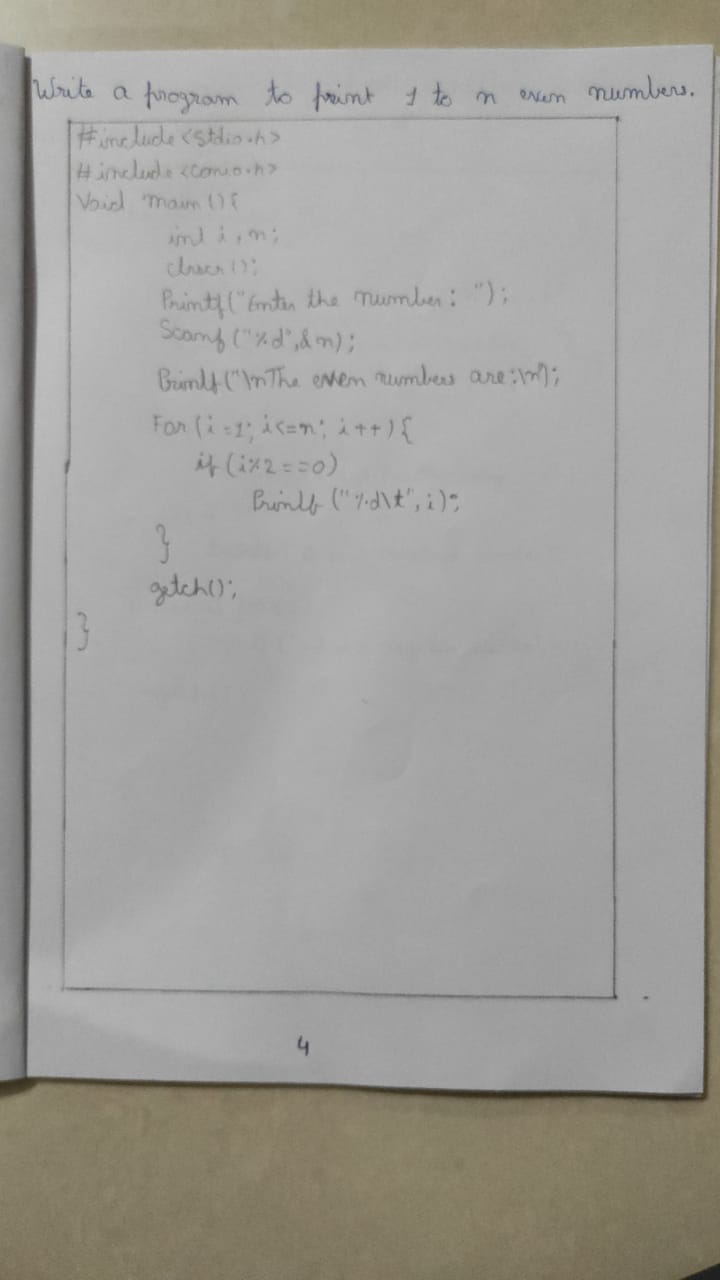 Write a program to print 1 to n even numbers.
#include <stdio.h>
#include <conio.h>
Void main () {
int i, n;
clrscr ();
Printf ("Enter the number: ");
Scanf ("%d", &n);
Printf ("\nThe even numbers are:\n");
For (i=1; i<=n; i++) {
if (i%2==0)
Printf ("%d\t", i);
}
getch();
}
4